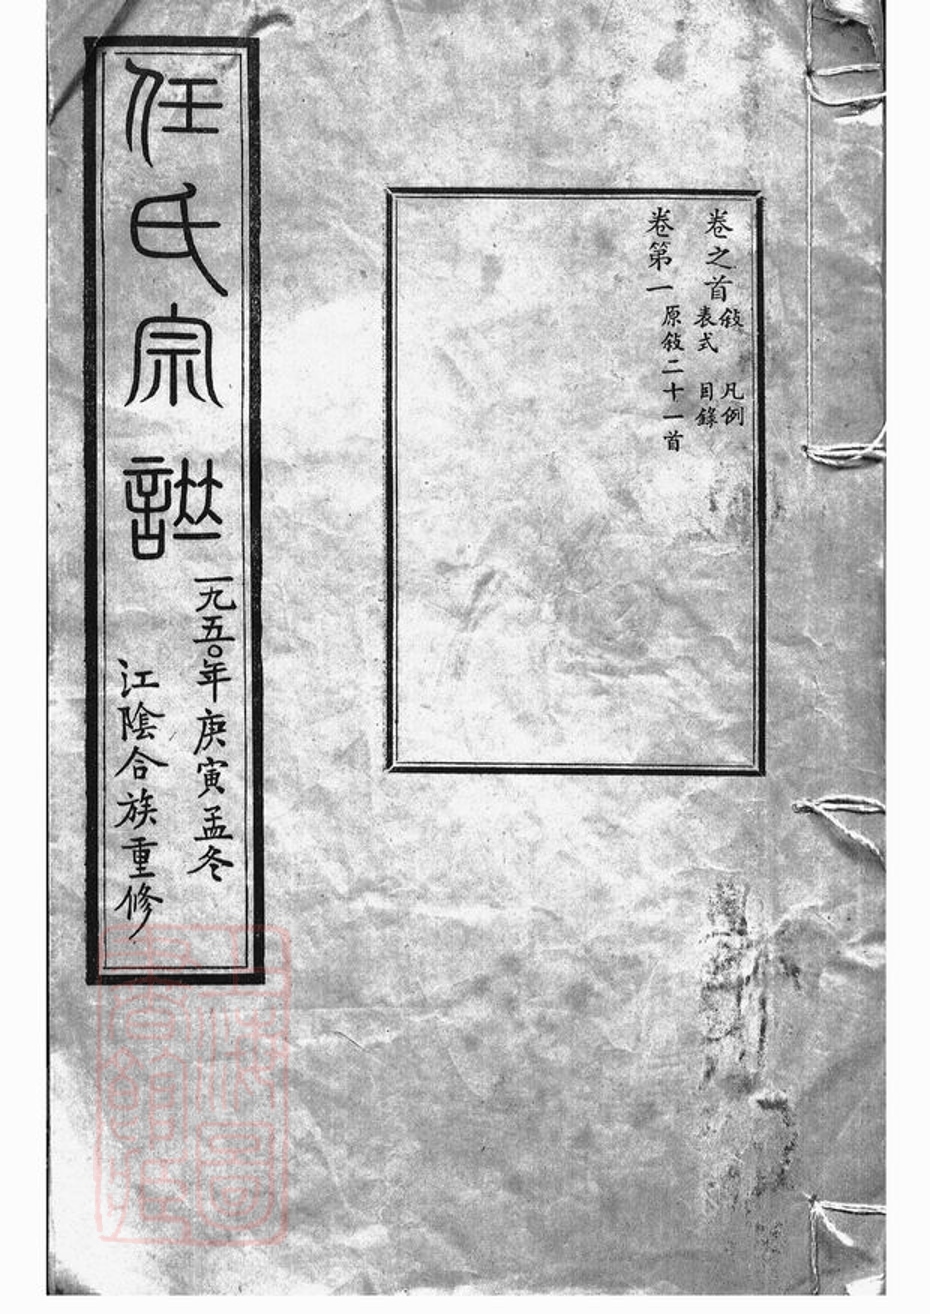 卷之首 敍 凡例
表式 目錄
卷第一 原敍二十一首
任氏宗譜
一九五〇年庚寅孟冬
江陰合族重修